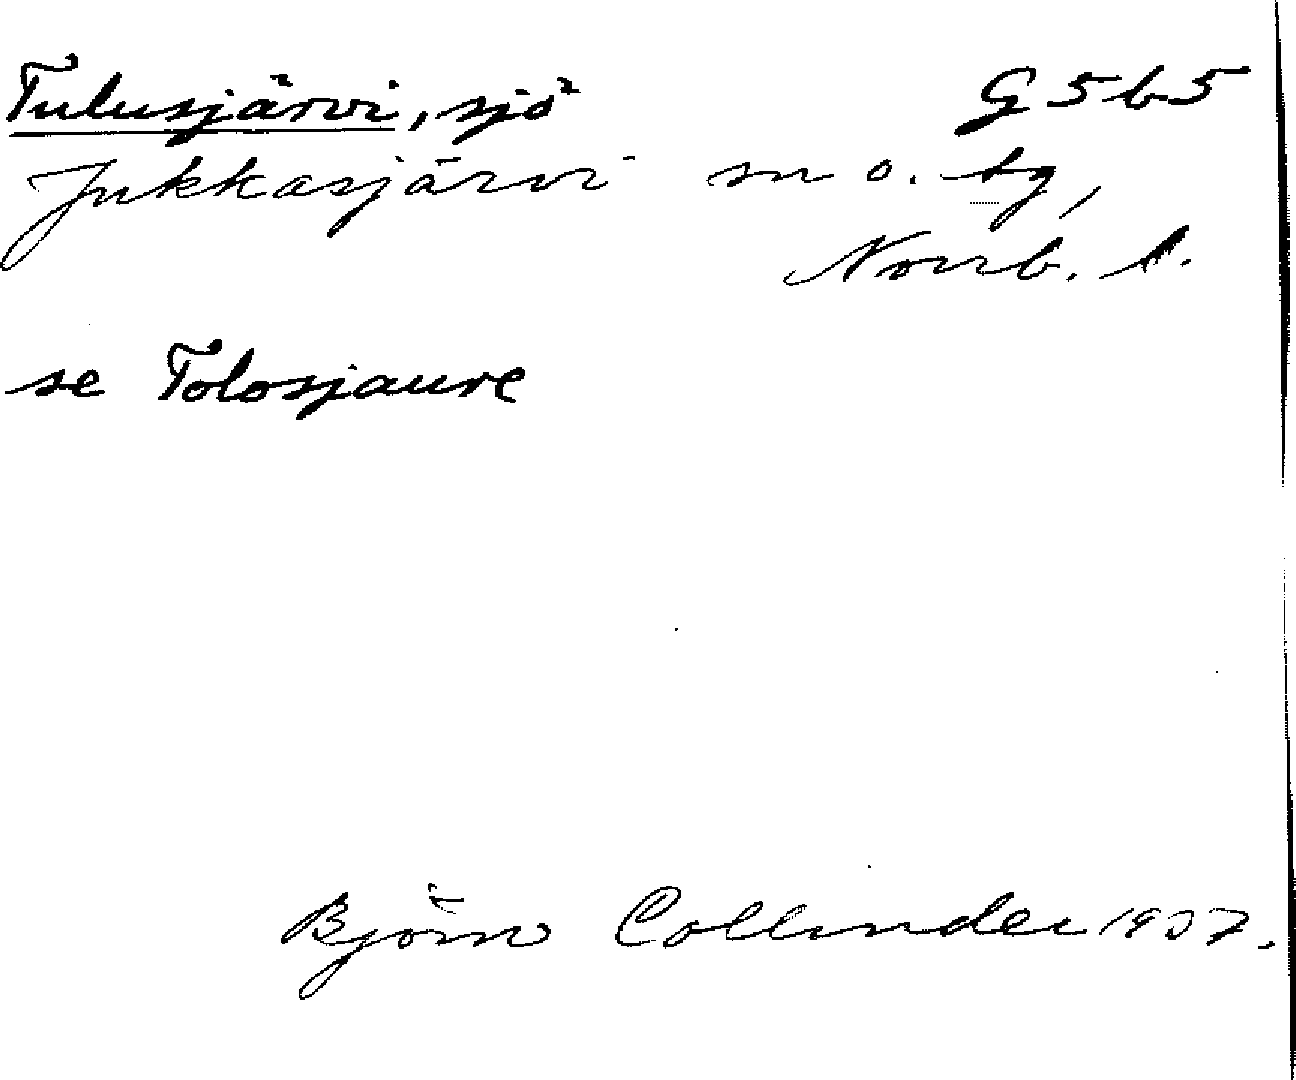 Tulusjärvi, sjö G5b5
Jukkasjärvi sn o. tg,
Norrb. l.
se Tolosjaure
Björn Collinder 1937.